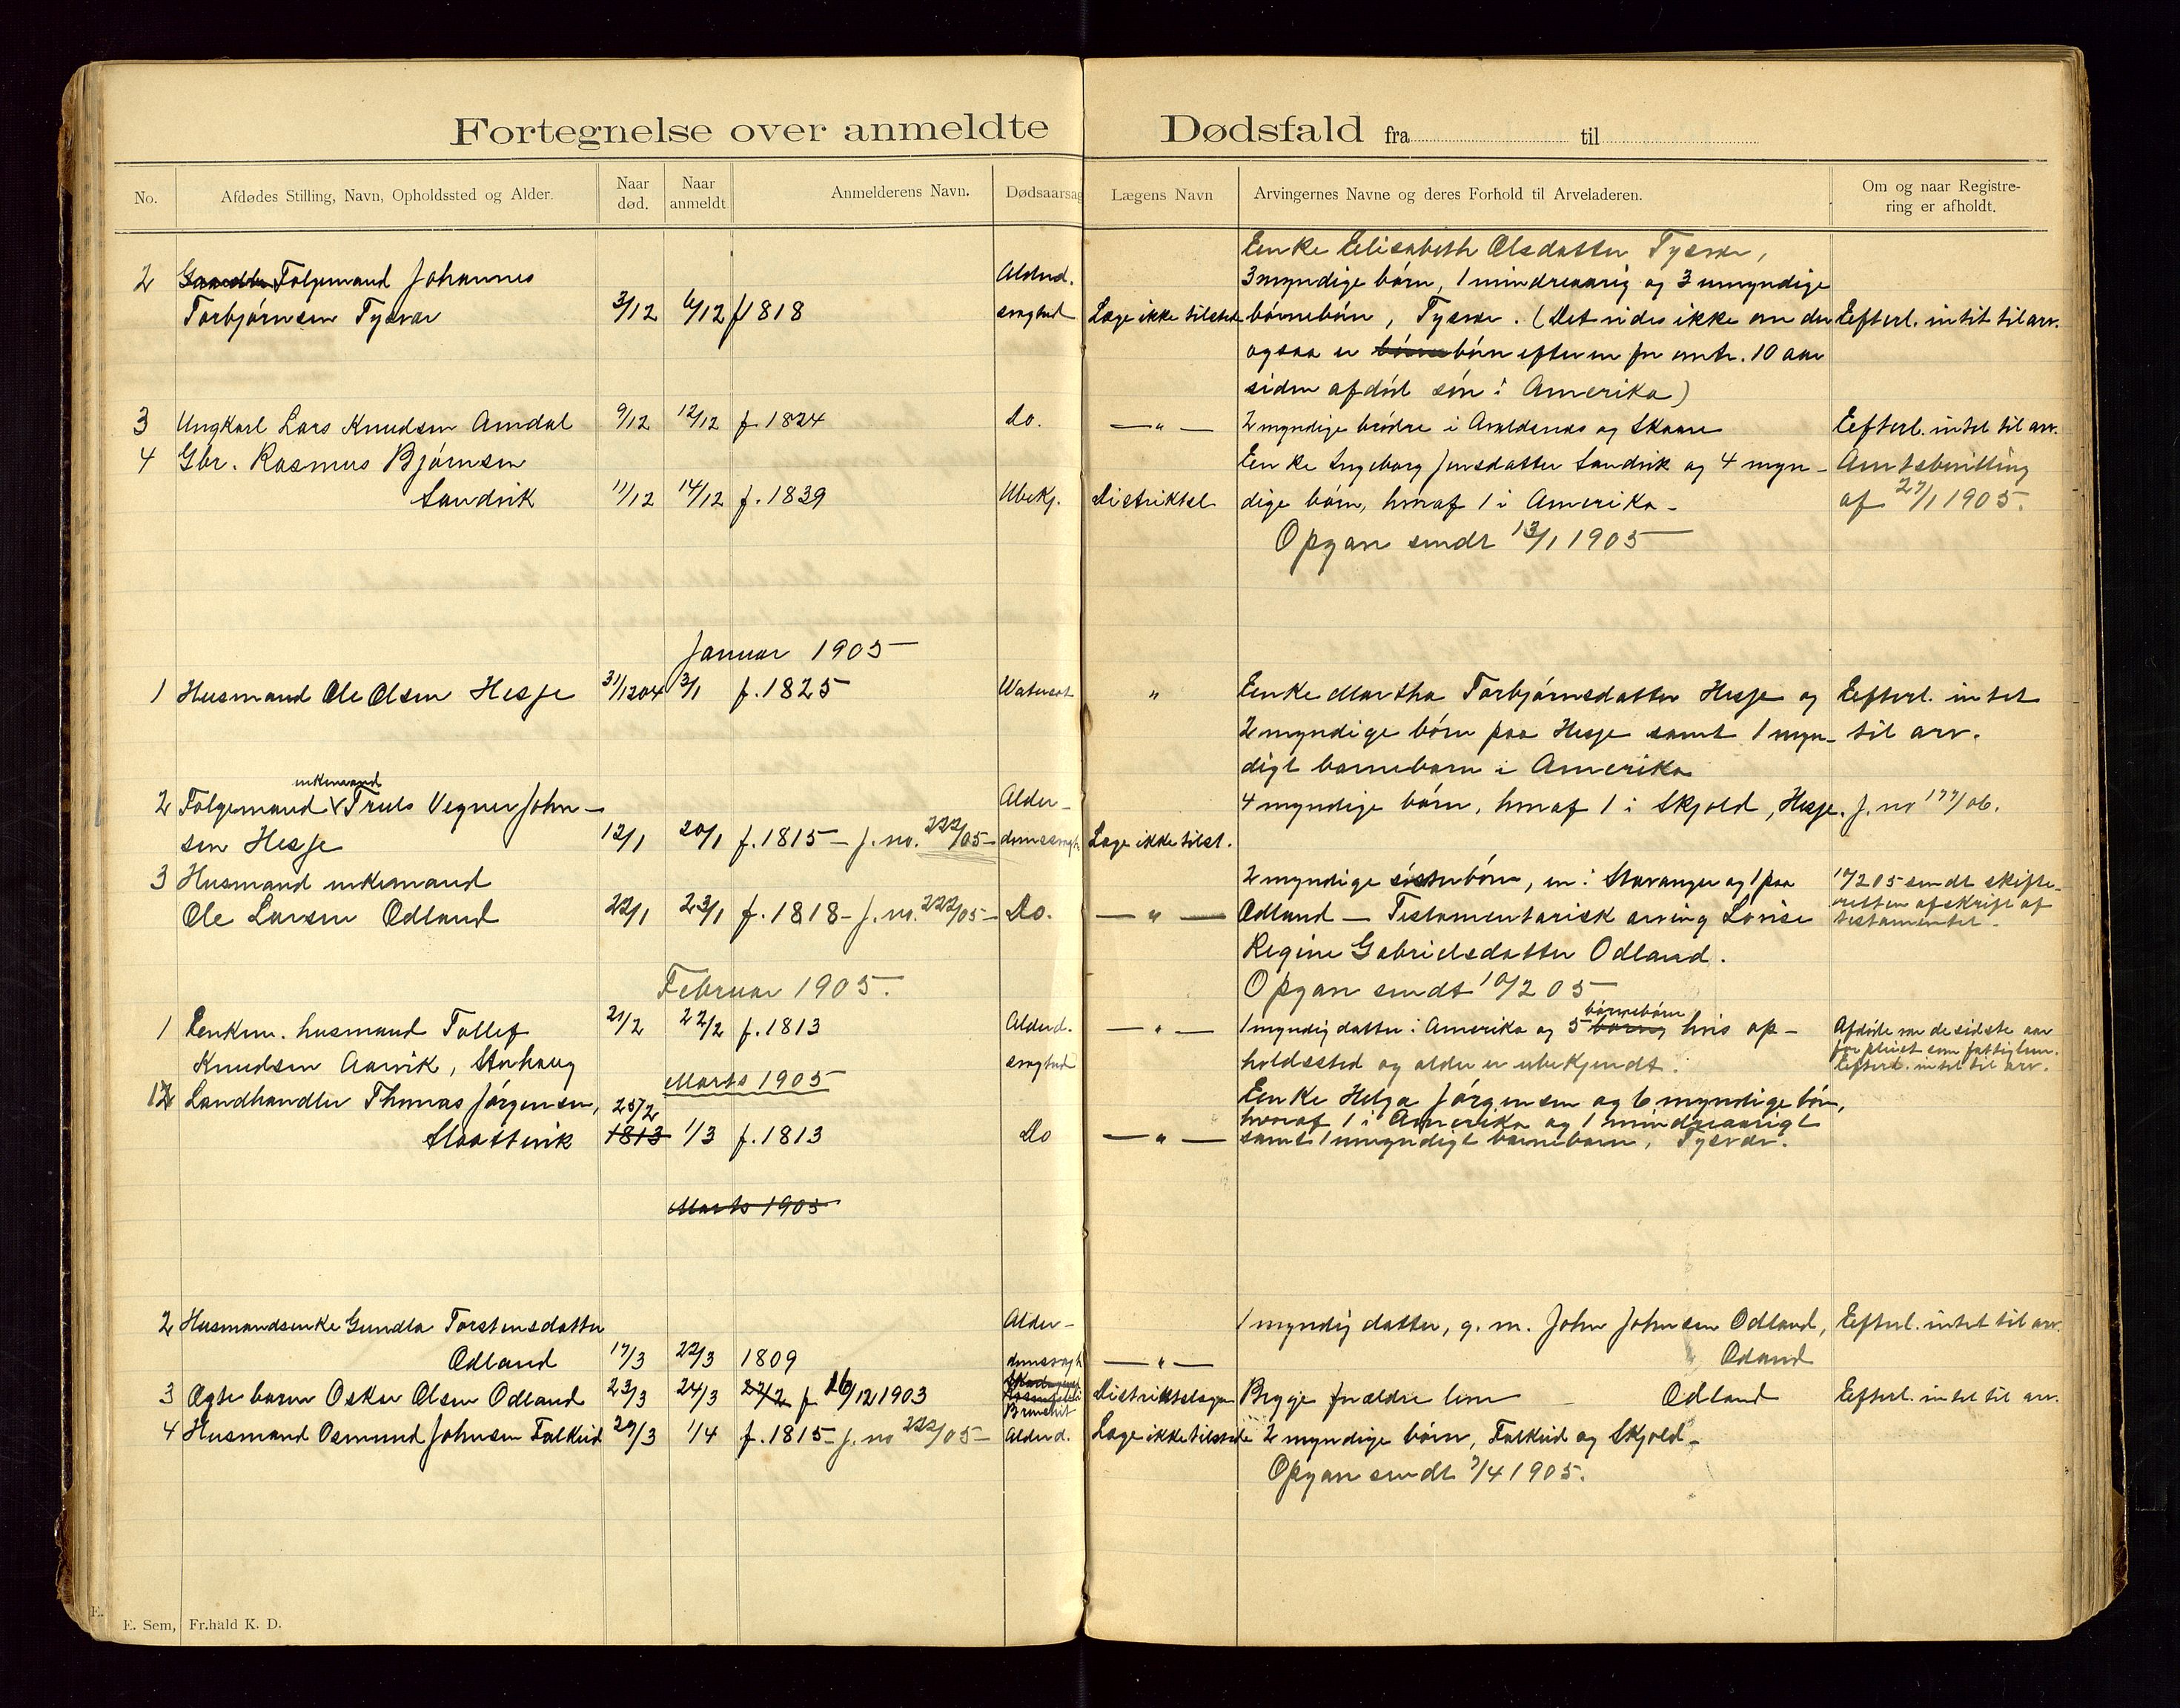 Fortegnelse over anmeldte Dødsfald fra til
No. Afdødes Stilling, Navn, Opholdssted og Alder. Naar død. Naar anmeldt Anmelderens Navn. Dødsaarsag Lægens Navn Arvingernes Navne og deres Forhold til Arveladeren. Om og naar Registrering er afholdt.
Enke Elisabeth Olsdatter Tysvær,
2 Folgemand Johannes Alderd. 3 myndige børn, 1 mindreaarig og 3 umyndige
Torbjørnsen Tysvær 3/12 6/12 f 1818 svaghed Læge ikke tilstede børnebørn, Tysvær. (Det vides ikke om der Efterl. intet til arv.
ogsaa er børnebørn efter en for omtr. 10 aar
siden afdød søn i Amerika)
3 Ungkarl Lars Knudsen Amdal 9/12 12/12 f. 1824 Do. — " — 2 myndige brødre i Avaldsnes og Skaare Efterl. intet til arv.
4 Gbr. Rasmus Bjørnsen Enke Ingeborg Jensdatter Sandvik og 4 myn- Amtsbevilling
Sandvik 11/12 14/12 f. 1839 Ubekj. Distriktsl. dige børn, hvoraf 1 i Amerika - af 27/1 1905.
Opgave sendt 13/1 1905
Januar 1905
1 Husmand Ole Olsen Hesje 31/12 04 3/1 f. 1825 Watersot " Enke Martha Torbjørnsdatter Hesje og Efterl. intet
2 myndige børn paa Hesje samt 1 myn- til arv.
digt barnebarn i Amerika
enkemand
2 Folgemand Truls Vegner John- Alder- 4 myndige børn, hvoraf 1 i Skjold, Hesje. J. no 177/06.
sen Hesje 12/1 20/1 f. 1815 - J. no. 222/05 - domssvagh. Læge ikke tilst.
3 Husmand enkemand 2 myndige søsterbørn, en i Stavanger og 1 paa 10/2 05 sendt skifte-
Ole Larsen Odland 22/1 23/1 f. 1818 - J. no. 222/05 - Do. — " — Odland — Testamentarisk arving Lovise retten afskrift af
testamentet.
Regine Gabrielsdatter Odland.
Februar 1905. Opgave sendt 10/2 05
børnebørn
1 Enkem. husmand Tollef 21/2 22/2 f. 1813 Alderd. — " — 1 myndig datter i Amerika og 5 børn hvis op- Afdøde var de sidste aar
Knudsen Aarvik, Storhaug svaghed holdssted og alder er ubekjendt. forpleiet som fattiglem.
Efterl. intet til arv.
Marts 1905
1 Landhandler Thomas Jørgensen, 25/2 Enke Helga Jørgensen og 6 myndige børn,
hvoraf 1 i Amerika og 1 mindreaarigt
Slaattevik 1813 1/3 f. 1813 Do — " — samt 1 umyndigt barnebarn, Tysvær.
Marts 1905
2 Husmandsenke Gundla Torstensdatter Alder- 1 myndig datter, g. m. John Johnsen Odland, Efterl. intet til arv.
Odland 17/3 22/3 1809 domssvagh. — " — Odland
3 Ægte barn Oskar Olsen Odland 23/3 24/3 22/2 f 26/12 1903 Distriktslægen Begge forældre leve - Odland Efterl. intet til arv.
4 Husmand Osmund Johnsen Falkeid 29/3 1/4 f. 1815 - J. no 222/05 - Alderd. Læge ikke tilstede 2 myndige børn, Falkeid og Skjold -
Opgave sendt 7/4 1905.
E. Sem, Fr.hald K. D.